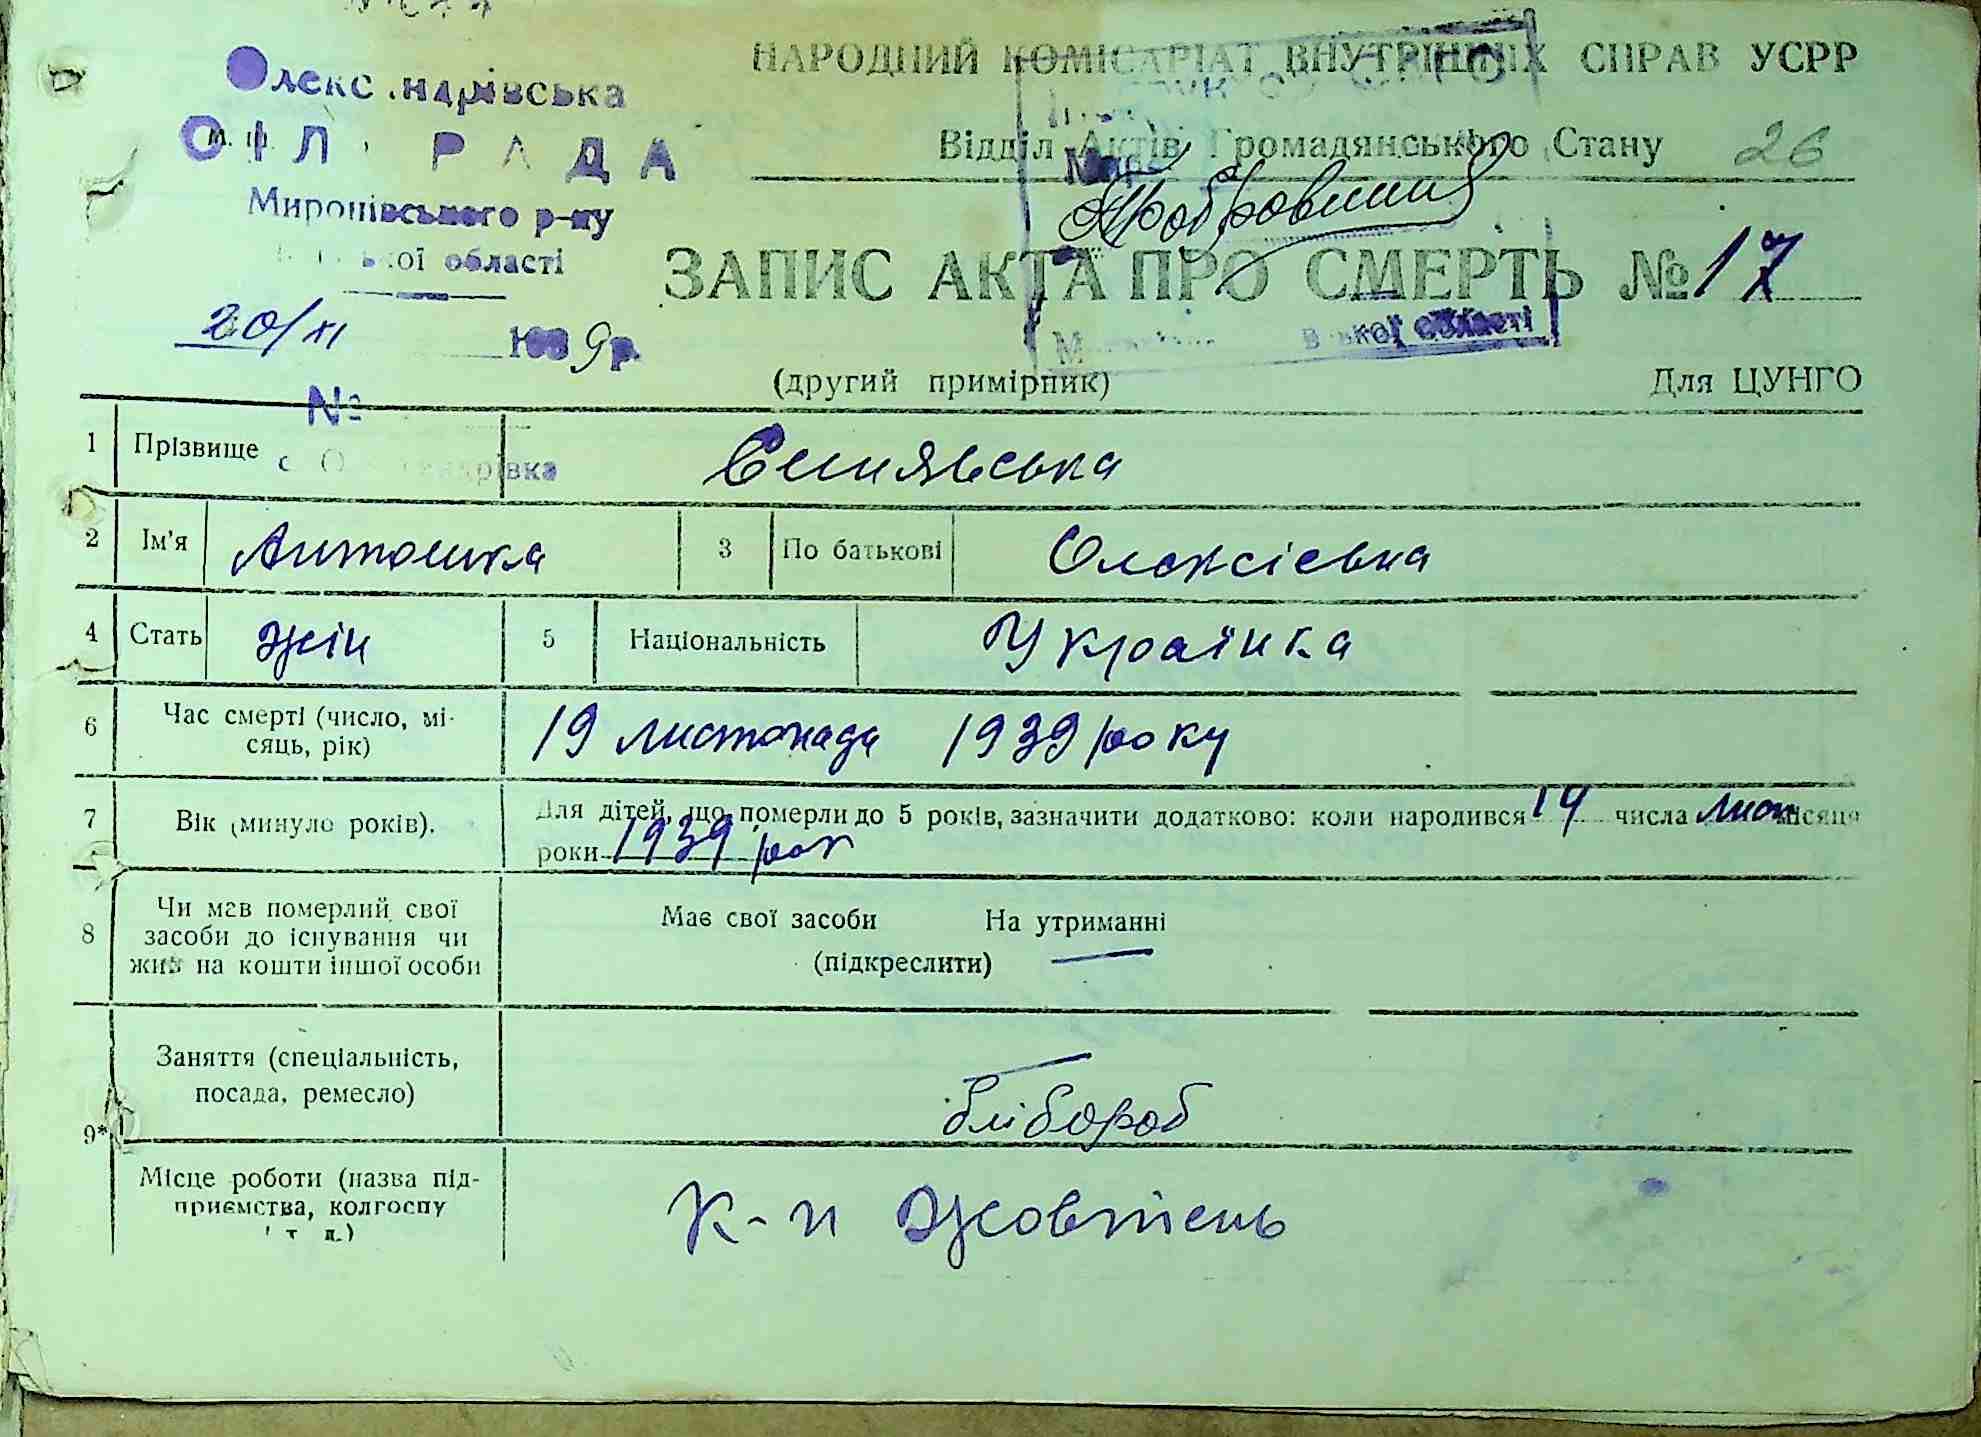 НАРОДНИЙ КОМІСАРІАТ ВНУТРІШНІХ СПРАВ УСРР
Відділ Актів Громадянського Стану 26
СІЛ РАДА
Миронівського р-ну
області
20/XI 1939р.
№
ЗАПИС АКТА ПРО СМЕРТЬ № 17
ської області
(другий примірник) Для ЦУНГО
1 Прізвище
2 Ім'я 3 По батькові Олексієвна
4 Стать жін 5 Національність Українка
6 Час смерті (число, мі-
сяць, рік) 19 листопада 1939 року
7 Вік (минуло років). Для дітей, що померли до 5 років, зазначити додатково: коли народився 14 числа лист місяця
роки 1939 рок
8 Чи мав померлий свої
засоби до існування чи
жив на кошти іншої особи
Має свої засоби На утриманні
(підкреслити)
9* Заняття (спеціальність,
посада, ремесло)
Місце роботи (назва під-
приємства, колгоспу
і т. д.)
к-п Жовтень